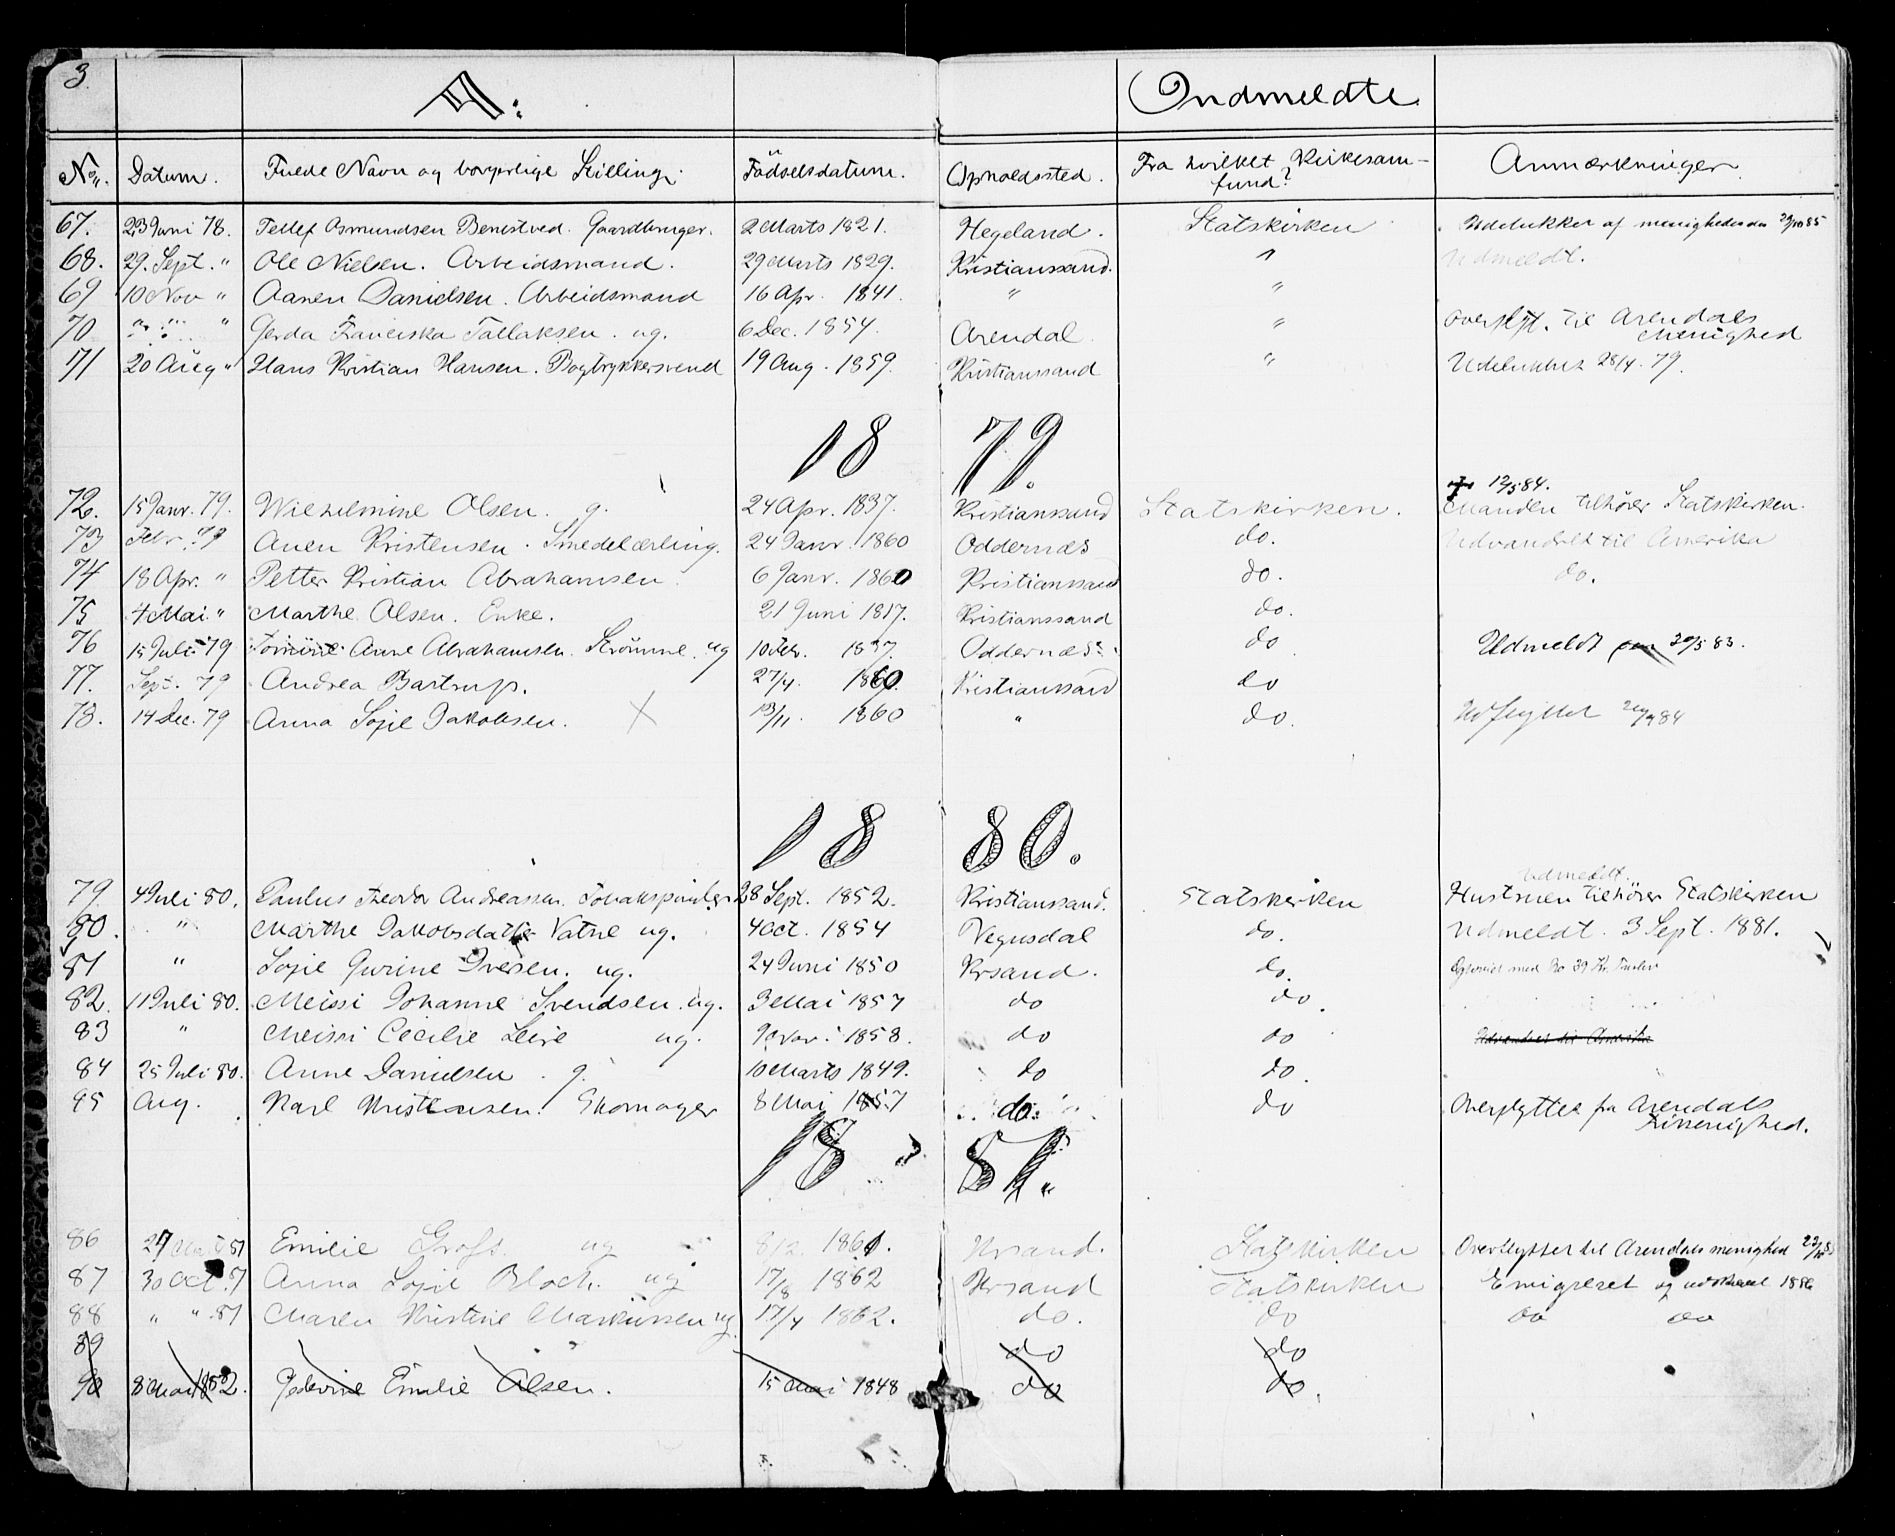 3.
A:
Indmeldte
No. Datum. Fulde Navn og borgerlige Stilling. Födselsdatum. Opholdssted. Fra hvilket Kirkesam-fund? Anmærkninger.
67. 23 Juni 78. Tellef Osmundsen Benestved. Gaardbruger. 2 Marts 1821. Hegeland. Statskirken Udelukket af menigheden 85
68. 29. Sept. " Ole Nielsen. Arbeidsmand. 29 Marts 1829. Kristianssand. " Udmeldt.
69 10 Nov " Aanen Danielsen. Arbeidsmand 16 Apr. 1841. " "
70 " " " Gerda Franciska Tallaksen. ug. 6 Dec. 1854. Arendal " Overflyt. til Arendals
Menighed
71 20 Aug " Hans Kristian Hansen. Bogtrykkersvend 19 Aug. 1859. Kristianssand " Udelukket 28/4. 79.
18 79.
12/5 84.
72. 15 Janr. 79. Wilhelmine Olsen. g. 24 Apr. 1837. Kristianssand Statskirken. Manden tilhører Statskirken.
73 Febr. 79 Anen Kristensen. Smedelærling. 24 Janr. 1860 Oddernæs do. Udvandret til Amerika
74 18 Apr. " Petter Kristian Abrahamsen. 6 Janr. 1860 Kristianssand do. do.
75 4 Mai " Marthe Olsen. Enke. 21 Juni 1817. Kristianssand do.
76 15 Juli 79 Anne Abrahamsen. Strømme. ug 10 Febr. 1837. Oddernæs do Udmeldt 20/5 83.
77. Sept. 79 Andrea Bastrup. 27/4. 1860. Kristianssand do
78. 14 Dec. 79 Anna Sofie Jakobsen. X 13/11. 1860 " do. Udflyttet 84
18 80.
Udmeldt.
79. 4 Juli 80. Paulus Theodor Andreassen. Tobakspinder 28 Sept. 1852. Kristianssand. Statskirken Hustruen tilhører Statskirken
80. " Marthe Jakobsdatter Vatne ug. 4 Oct. 1854 Vegusdal do. Udmeldt. 3 Sept. 1881.
81 " Sofie Gurine Iversen. ug. 24 Juni 1850 Krsand. do. med No 39
82. 11 Juli 80. Meissi Johanne Svendsen. ug. 3 Mai 1857 do do.
83 " Meissi Cecilie Leire ug. 9 Nov. 1858. do do Udvandret til Amerika
84 25 Juli 80. Anne Danielsen. g. 10 Marts 1849. do do.
95 Aug. Karl Kristensen. Skomager 8 Mai 1857 do. do Overflyttet fra Arendals
menighed.
18 81.
86 27 81 Emilie Groft. ug 8/2 1861. Krsand. Statskirken Overflyttet til Arendals menighed
87 30 Oct. 81 Anna Sofie Bloch. ug 17/8 1862 Krsand Statskirken Emigreret og 1886
88 " " 81 Maren Kristine Markussen ug. 17/4 1862. do. do do do
89 do do
90 8 Mai 1882. Emilie Olsen. 15 Mai 1848 do do.